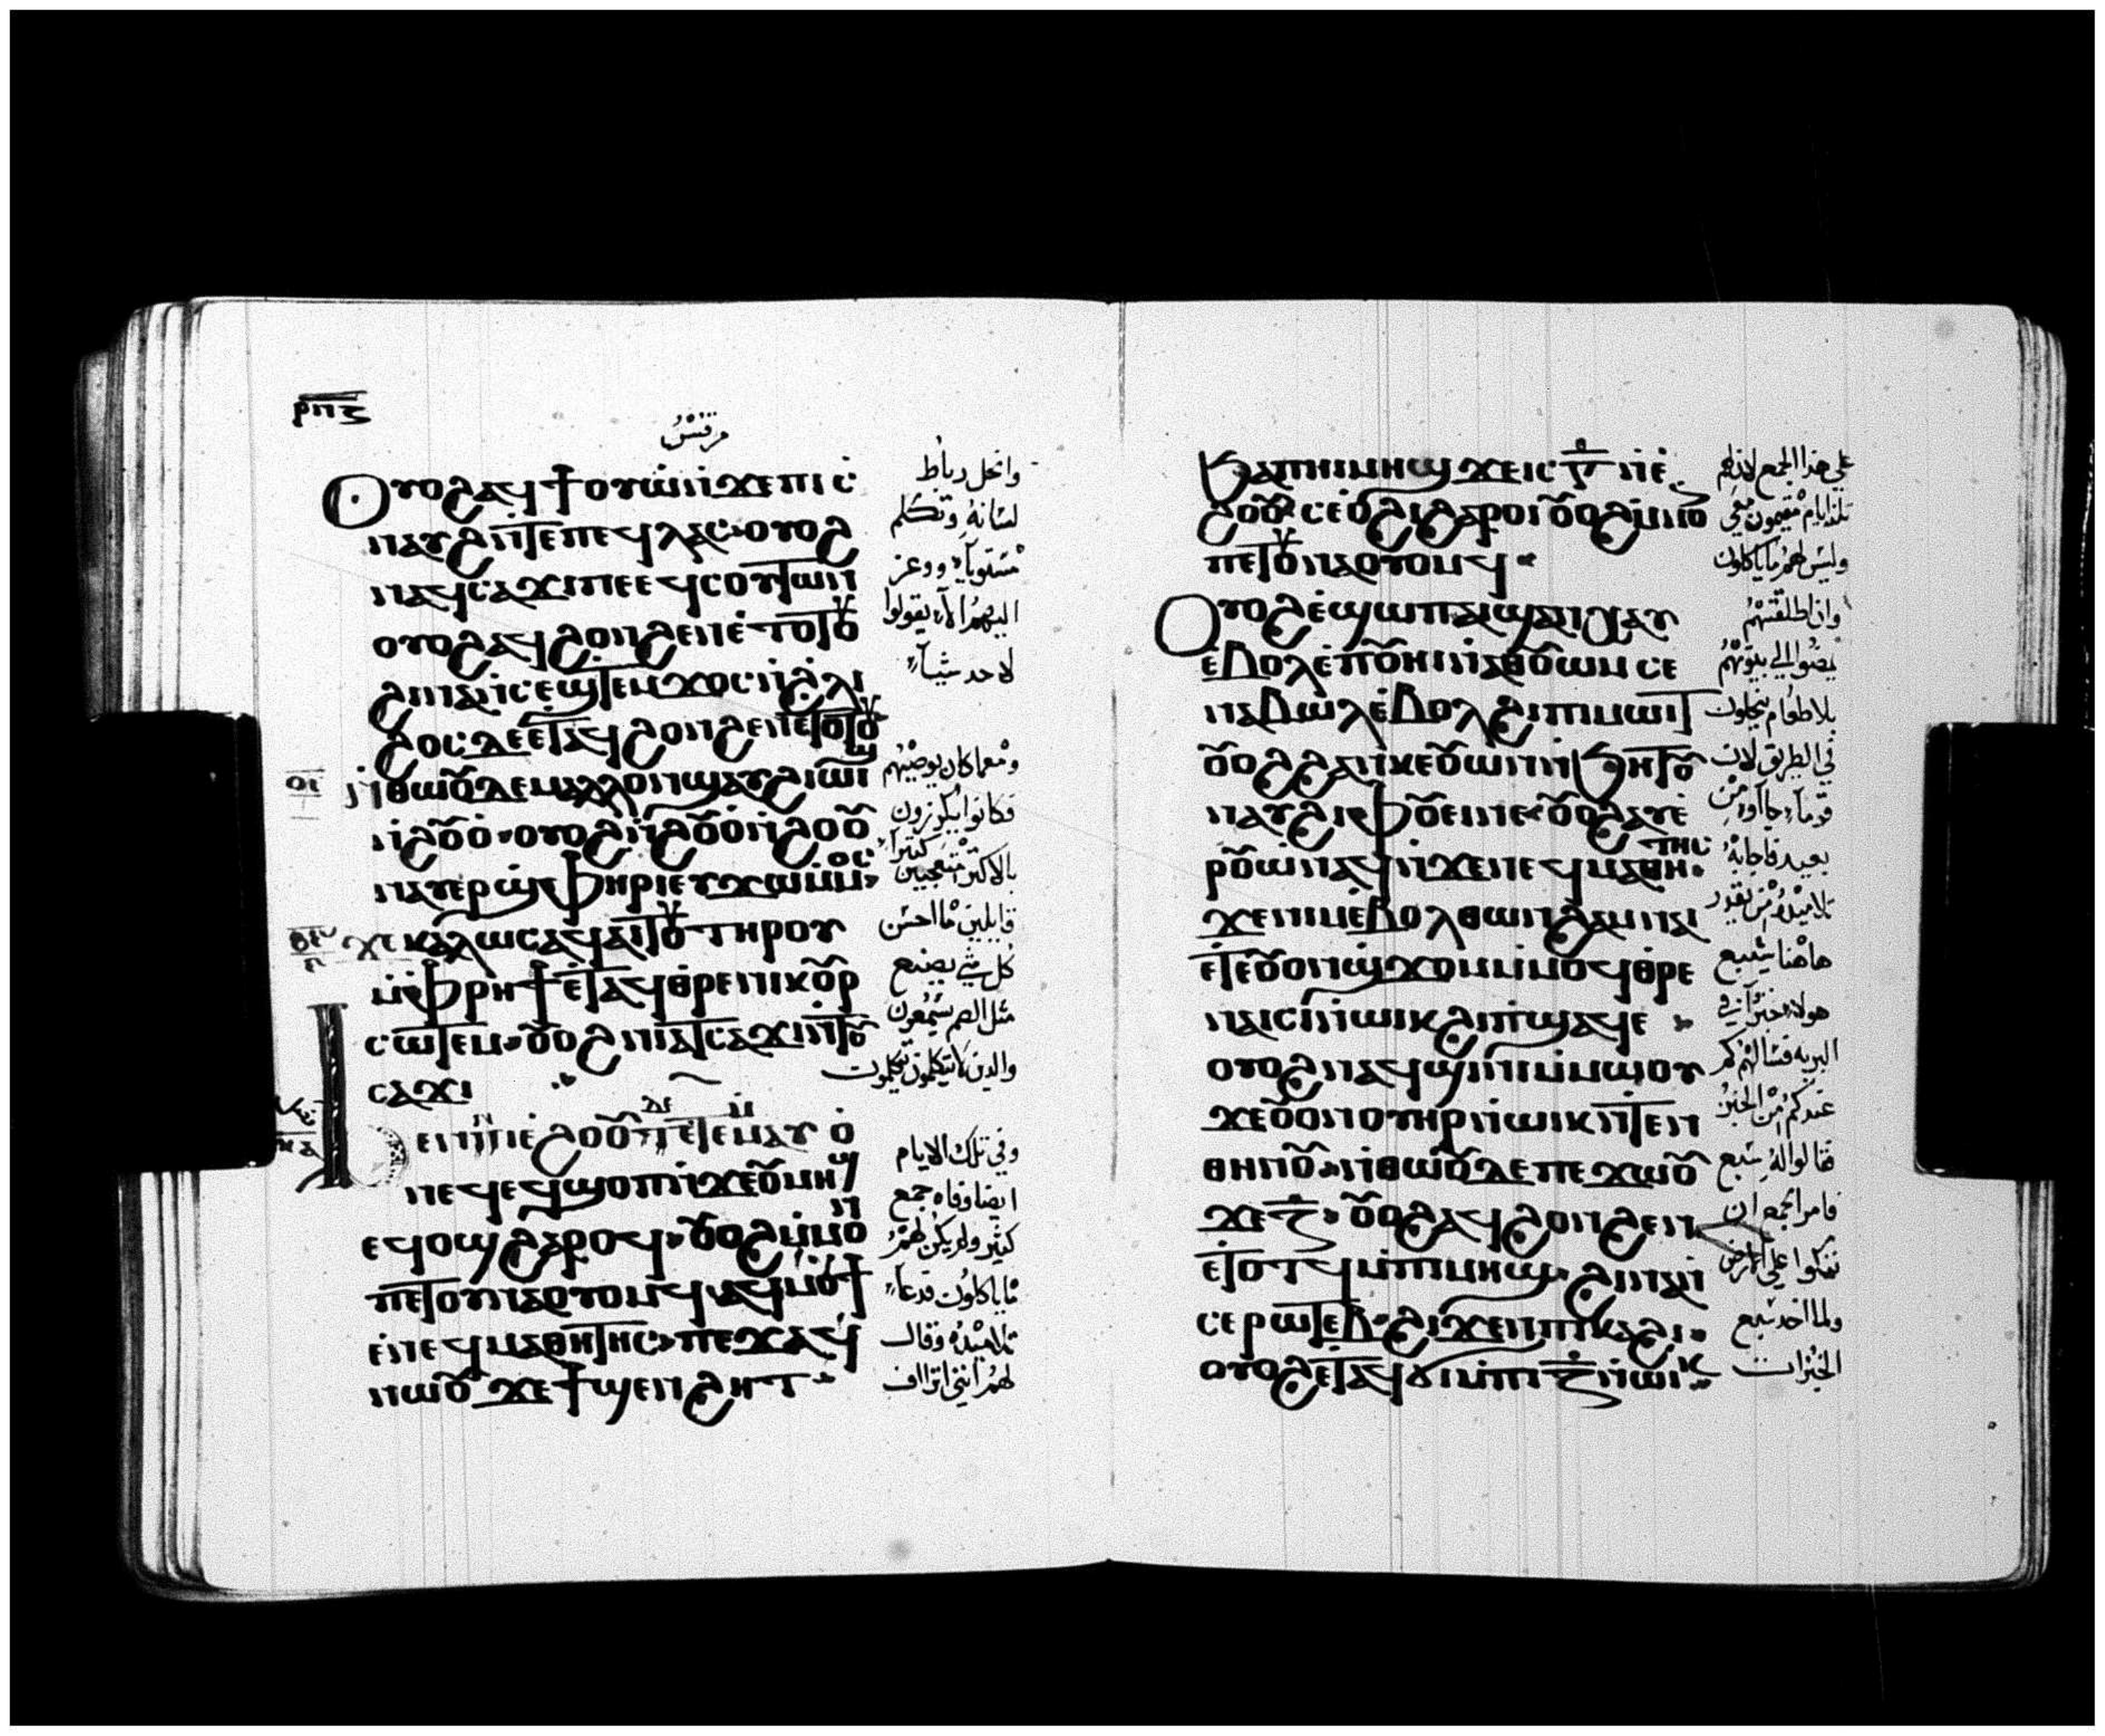 ⲣⲡⲍ
مرقس
Ⲟⲩⲟϩ ⲁϥϯⲟⲩⲱ ⲛ̀ϫⲉ ⲡⲓⲥ̀
ⲛⲁⲩϩ ⲛ̀ⲧⲉ ⲡⲉϥⲗⲁⲥ ⲟⲩⲟϩ
ⲛⲁϥⲥⲁϫⲓ ⲡⲉ ⲉϥⲥⲟⲩⲧⲱⲛ
ⲟⲩⲟϩ ⲁϥϩⲟⲛϩⲉⲛ ⲉ̀ⲧⲟⲧⲟⲩ
ϩⲓⲛⲁ ⲛ̀ⲥⲉϣⲧⲉⲙϫⲟⲥ ⲛ̀ϩ̀ⲗⲓ
ϩⲟⲥ ⲇⲉ ⲉ̀ⲧⲁϥϩⲟⲛϩⲉⲛ ⲉⲧⲟⲧⲟⲩ
ⲛ̀ⲑⲱⲟⲩ ⲇⲉ ⲙⲁⲗⲗⲟⲛ ϣⲁⲩϩⲓⲱⲓϣ
ⲛ̀ϩⲟⲩⲟ̀ ⲟⲩⲟϩ ⲛ̀ϩⲟⲩⲟ̀ ⲛ̀ϩⲟⲩⲟ
ⲛⲁⲩⲉⲣϣⲫⲏⲣⲓ ⲉⲩϫⲱ ⲙ̀ⲙⲟⲥ
ϫⲉ ⲕⲁⲗⲱⲥ ⲁϥⲁⲓⲧⲟⲩ ⲧⲏⲣⲟⲩ
ⲙ̀ⲫⲣⲏϯ ⲉ̀ⲧⲁϥⲑⲣⲉ ⲛⲓⲕⲟⲩⲣ
ⲥⲱⲧⲉⲙ ⲟⲩⲟϩ ⲛⲓⲁⲧⲥⲁϫⲓ ⲛ̀ⲧⲟⲩ
ⲥⲁϫⲓ
Ϧⲉⲛ ⲛⲓⲉ̀ϩⲟⲟⲩ ⲇⲉ ⲉ̀ⲧⲉⲙⲙⲁⲩ ⲟ̀
ⲛⲉ ϥⲉϥϣⲟⲡ ⲛ̀ϫⲉ ⲟⲩⲙⲏϣ
ⲉϥⲟϣ ϩⲁⲣⲟϥ ⲟⲩⲟϩ ⲙ̀ⲙⲟⲛ
ⲡⲉⲧⲟⲩⲛⲁⲟⲩⲟⲙϥ ⲁϥⲙⲟⲩϯ
ⲉ̀ⲛⲉϥⲙⲁⲑⲏⲧⲏⲥ ⲡⲉϫⲁϥ
ⲛⲱⲟⲩ ϫⲉ ϯϣⲉⲛϩⲏⲧ
وانحل رباط
لسانه وتكلم
مستويا ووعز
اليهم الا يقولوا
لاحد شيا
ومهما كان يوصيهم
فكانوا يكرزون
كثيرا
بالاكثر متعجبين
قايلين ما احسن
كل شي يصنع
مثل الصم يسمعون
والذين لا يتكلمون يتكلمون
وفي تلك الايام
ايضا وفاه جمع
كثير ولم يكن لهم
ما ياكلون فدعا
تلاميذه وقال
لهم انني اتراف
ϧⲁ ⲡⲓⲙⲏϣ ϫⲉ ⲓⲥ ⲅ̅ ⲛ̀ⲉ̀
ϩⲟⲟⲩ ⲥⲉⲟ̀ϩⲓ ϩⲁⲣⲟⲓ ⲟⲩⲟϩ ⲙ̀ⲙⲟⲛ
ⲡⲉⲧⲟⲩⲛⲁⲟⲩⲟⲙϥ
Ⲟⲩⲟϩ ⲉ̀ϣⲱⲡ ⲁⲓϣⲁⲛⲭⲁⲩ
ⲉ̀ⲃⲟⲗ ⲉ̀ⲡⲟⲩⲏⲓ ⲛ̀ⲁⲑⲟⲩⲱⲙ ⲥⲉ
ⲛⲁⲃⲱⲗ ⲉ̀ⲃⲟⲗ ϩⲓ ⲡⲓⲙⲱⲓⲧ
ⲟⲩⲟϩ ϩⲁⲛⲕⲉⲟⲩⲱⲛ ⲛ̀ϧⲏⲧⲟⲩ
ⲛⲁⲩϩⲓⲫⲟⲩⲉⲓ ⲛⲉ ⲟⲩⲟϩ ⲁⲩⲉ̀
ⲣⲟⲩⲱ̀ ⲛⲁϥ ⲛ̀ϫⲉ ⲛⲉϥⲙⲁⲑⲏⲧⲏⲥ
ϫⲉ ⲛⲓⲙ ⲉ̀ⲃⲟⲗ ⲑⲱⲛ ϩⲁⲙⲛⲁⲓ
ⲉ̀ⲧⲉ ⲟⲩⲟⲛ ϣϫⲟⲙ ⲙ̀ⲙⲟϥ ⲑⲣⲉ
ⲛⲁⲓ ⲥⲓ ⲛ̀ⲱⲓⲕ ϩⲓ ⲡ̀ϣⲁϥⲉ
ⲟⲩⲟϩ ⲛⲁϥϣⲓⲛⲓ ⲙ̀ⲙⲱⲟⲩ
ϫⲉ ⲟⲩⲟⲛ ⲟⲩⲏⲣ ⲛ̀ⲱⲓⲕ ⲛ̀ⲧⲉⲛ
ⲑⲏⲛⲟⲩ ⲛ̀ⲑⲱⲟⲩ ⲇⲉ ⲡⲉϫⲱⲟⲩ
ϫⲉ ⲍ̅ ⲟⲩⲟϩ ⲁϥϩⲟⲛϩⲉⲛ
ⲉ̀ⲧⲟⲧϥ ⲙ̀ⲡⲓⲙⲏϣ ϩⲓⲛⲁ ⲛ̀
ⲥⲉⲣⲱⲧⲉⲃ ϩⲓϫⲉⲛ ⲡⲓⲕⲁϩⲓ
ⲟⲩⲟϩ ⲉ̀ⲧⲁϥϭⲓ ⲙ̀ⲡⲓ ⲍ̅ ⲛ̀ⲱⲓⲕ
علي هذا الجمع لان لهم
ثلثة ايام مقيمون معي
وليس لهم ما ياكلون
وان اطلقتهم
يمضوا الي بيوتهم
بلا طعام ينحلون
في الطريق لان
قوما جآوا من
بعيد فاجابه
تلاميذه من يقدر
هاهنا يشبع
هولاء خبزا في
البريه فسالهم كم
عندكم من الخبز
فقالوا له سبع
فامر الجمع ان
يتكوا علي الارض
ولما اخذ سبع
الخبزات